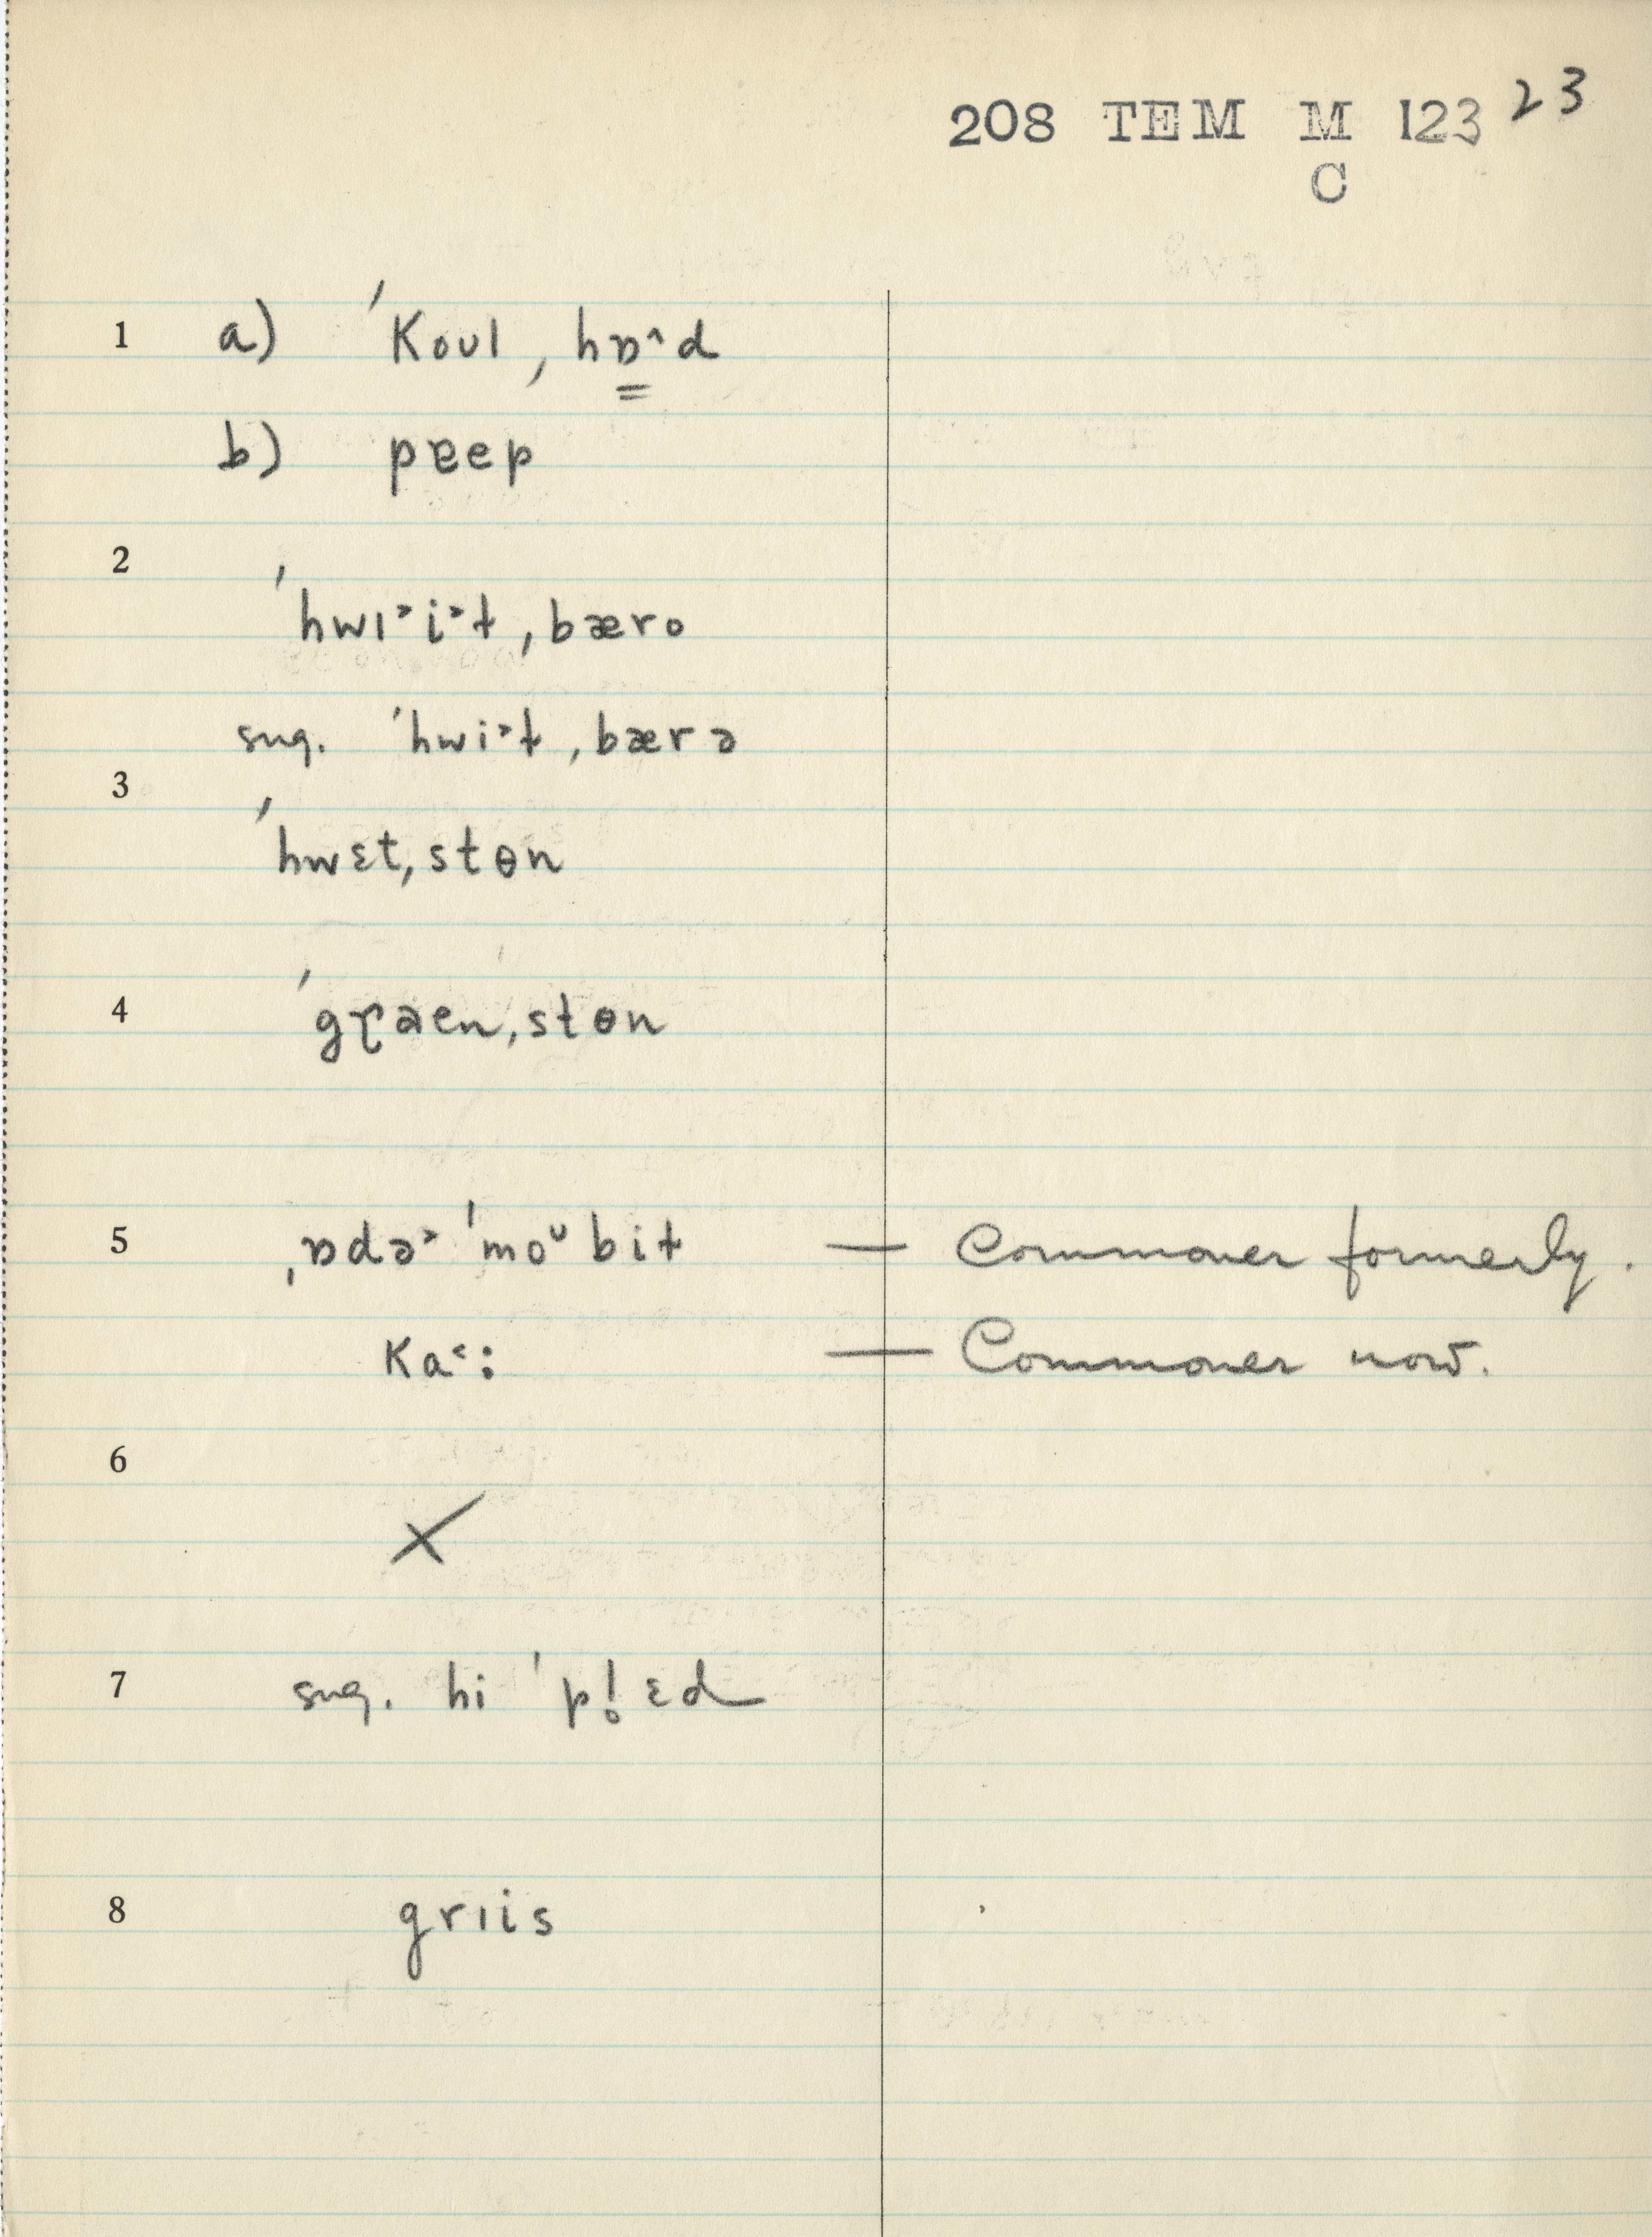 208 TEM M 123 23
C
1 a) ˈKoʊl ˌhɒ̳^d
b) pɐep
2
ˈhwɪ˃i˃ƚ ˌbæro
sug. ˈhwi˃ƚ ˌbærə
3
ˈhwɛtˌstɵn
4 ˈgɽəenˌstɵn
5 ˌɒdə˃ ˈmoᶸbiƚ — Commoner formerly.
Ka˂: — Commoner now.
6
X
7 sug. hi ˈpl̥ɛd
8 grɪis